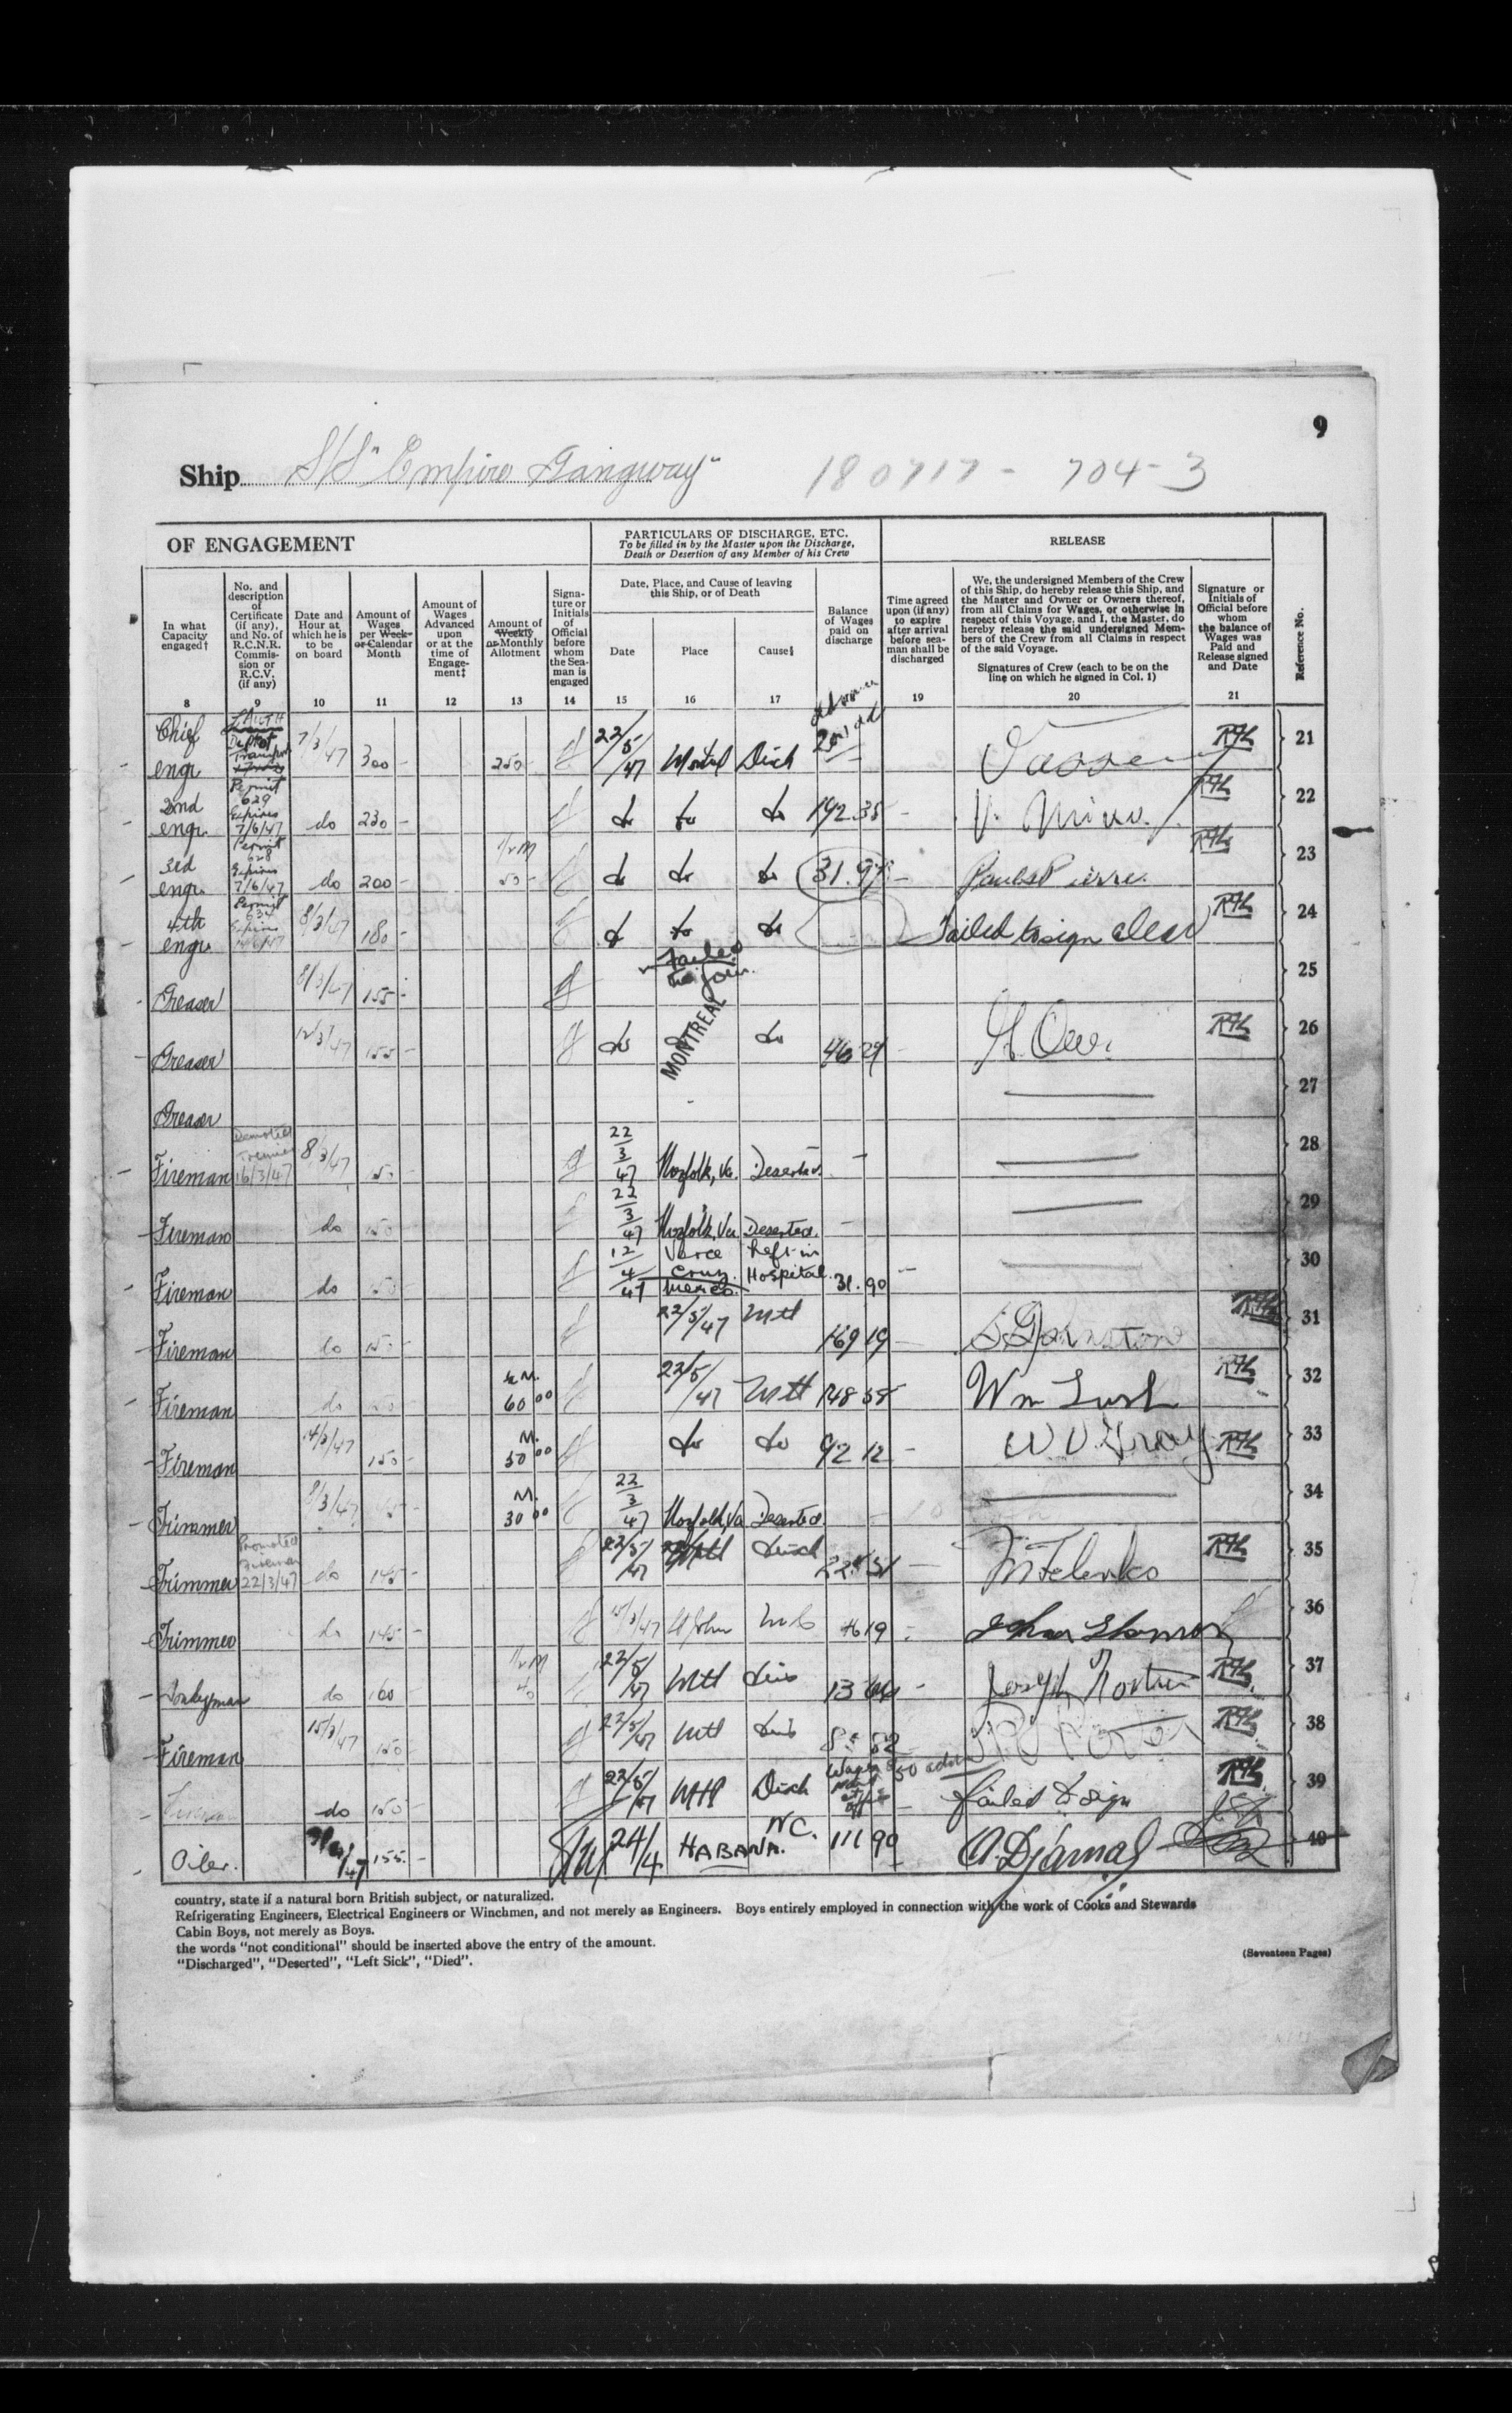 9
Ship S/S "Empire Gangway" 180717 - 704-3
OF ENGAGEMENT
PARTICULARS OF DISCHARGE, ETC.
To be filled in by the Master upon the Discharge,
Death or Desertion of any Member of his Crew
RELEASE
Reference No.
In what
Capacity
engaged†
No. and
description
of
Certificate
(if any),
and No. of
R.C.N.R.
Commis-
sion or
R.C.V.
(if any)
Date and
Hour at
which he is
to be
on board
Amount of
Wages
per Week
or Calendar
Month
Amount of
Wages
Advanced
upon
or at the
time of
Engage-
ment‡
Amount of
Weekly
or Monthly
Allotment
Signa-
ture or
Initials
of
Official
before
whom
the Sea-
man is
engaged
Date, Place, and Cause of leaving
this Ship, or of Death
Date
Place
Cause§
Balance
of Wages
paid on
discharge
Time agreed
upon (if any)
to expire
after arrival
before sea-
man shall be
discharged
We, the undersigned Members of the Crew
of this Ship, do hereby release this Ship, and
the Master and Owner or Owners thereof,
from all Claims for Wages, or otherwise in
respect of this Voyage, and I, the Master, do
hereby release the said undersigned Mem-
bers of the Crew from all Claims in respect
of the said Voyage.
Signatures of Crew (each to be on the
line on which he signed in Col. 1)
Signature or
Initials of
Official before
whom
the balance of
Wages was
Paid and
Release signed
and Date
8 9 10 11 12 13 14 15 16 17 19 20 21
Chief engr 7/3/47 300 - 250 - 22/5/47 Disch 21
2nd engr. Permit 629 Expires 7/6/47 do 230 - do do do 192.38 - 22
3rd engr. Permit 628 Expires 7/6/47 do 200 - 50 - do do do 31.97 - 23
4th engr. Permit 634 Expires 8/3/47 180 - do do do Failed to sign clear 24
Greaser 8/3/47 155 - Failed to join. 25
Greaser 12/3/47 155 - do MONTREAL do 46 29 - 26
Greaser 27
Fireman Demoted Trimmer 16/3/47 8/3/47 150 - 22/3/47 Norfolk, Va. Deserted - 28
Fireman do 150 - 22/3/47 Norfolk, Va Deserted. - 29
Fireman do 150 - 12/4/47 Vera Cruz. Mexico. Left in Hospital. 31.90 - 30
Fireman do 150 - 22/5/47 Mtl 169 19 - S. Johnston 31
Fireman do 150 - M. 60 00 22/5/47 Mtl 148 58 Wm Lush 32
Fireman 14/3/47 150 - M. 50 00 do do 92 12 - W V Gray 33
Trimmer 8/3/47 M. 30 00 22/3/47 Norfolk, Va Deserted 34
Trimmer Promoted Fireman 22/3/47 do 145 - 22/5/47 Mtl disch - 35
Trimmer do 145 - 15/3/47 St John N B 19 John 36
Donkeyman do 160 - 22/5/47 Mtl dis 13 - Joseph 37
Fireman 15/3/47 150 - 22/5/47 Mtl dis 38
do 150 - 22/5/47 Mtl Disch Wages failed to sign 39
Oiler. 155 - 24/4 HABANA. 111 90 A. Djamal 40
country, state if a natural born British subject, or naturalized.
Refrigerating Engineers, Electrical Engineers or Winchmen, and not merely as Engineers. Boys entirely employed in connection with the work of Cooks and Stewards
Cabin Boys, not merely as Boys.
the words "not conditional" should be inserted above the entry of the amount.
"Discharged", "Deserted", "Left Sick", "Died".
(Seventeen Pages)